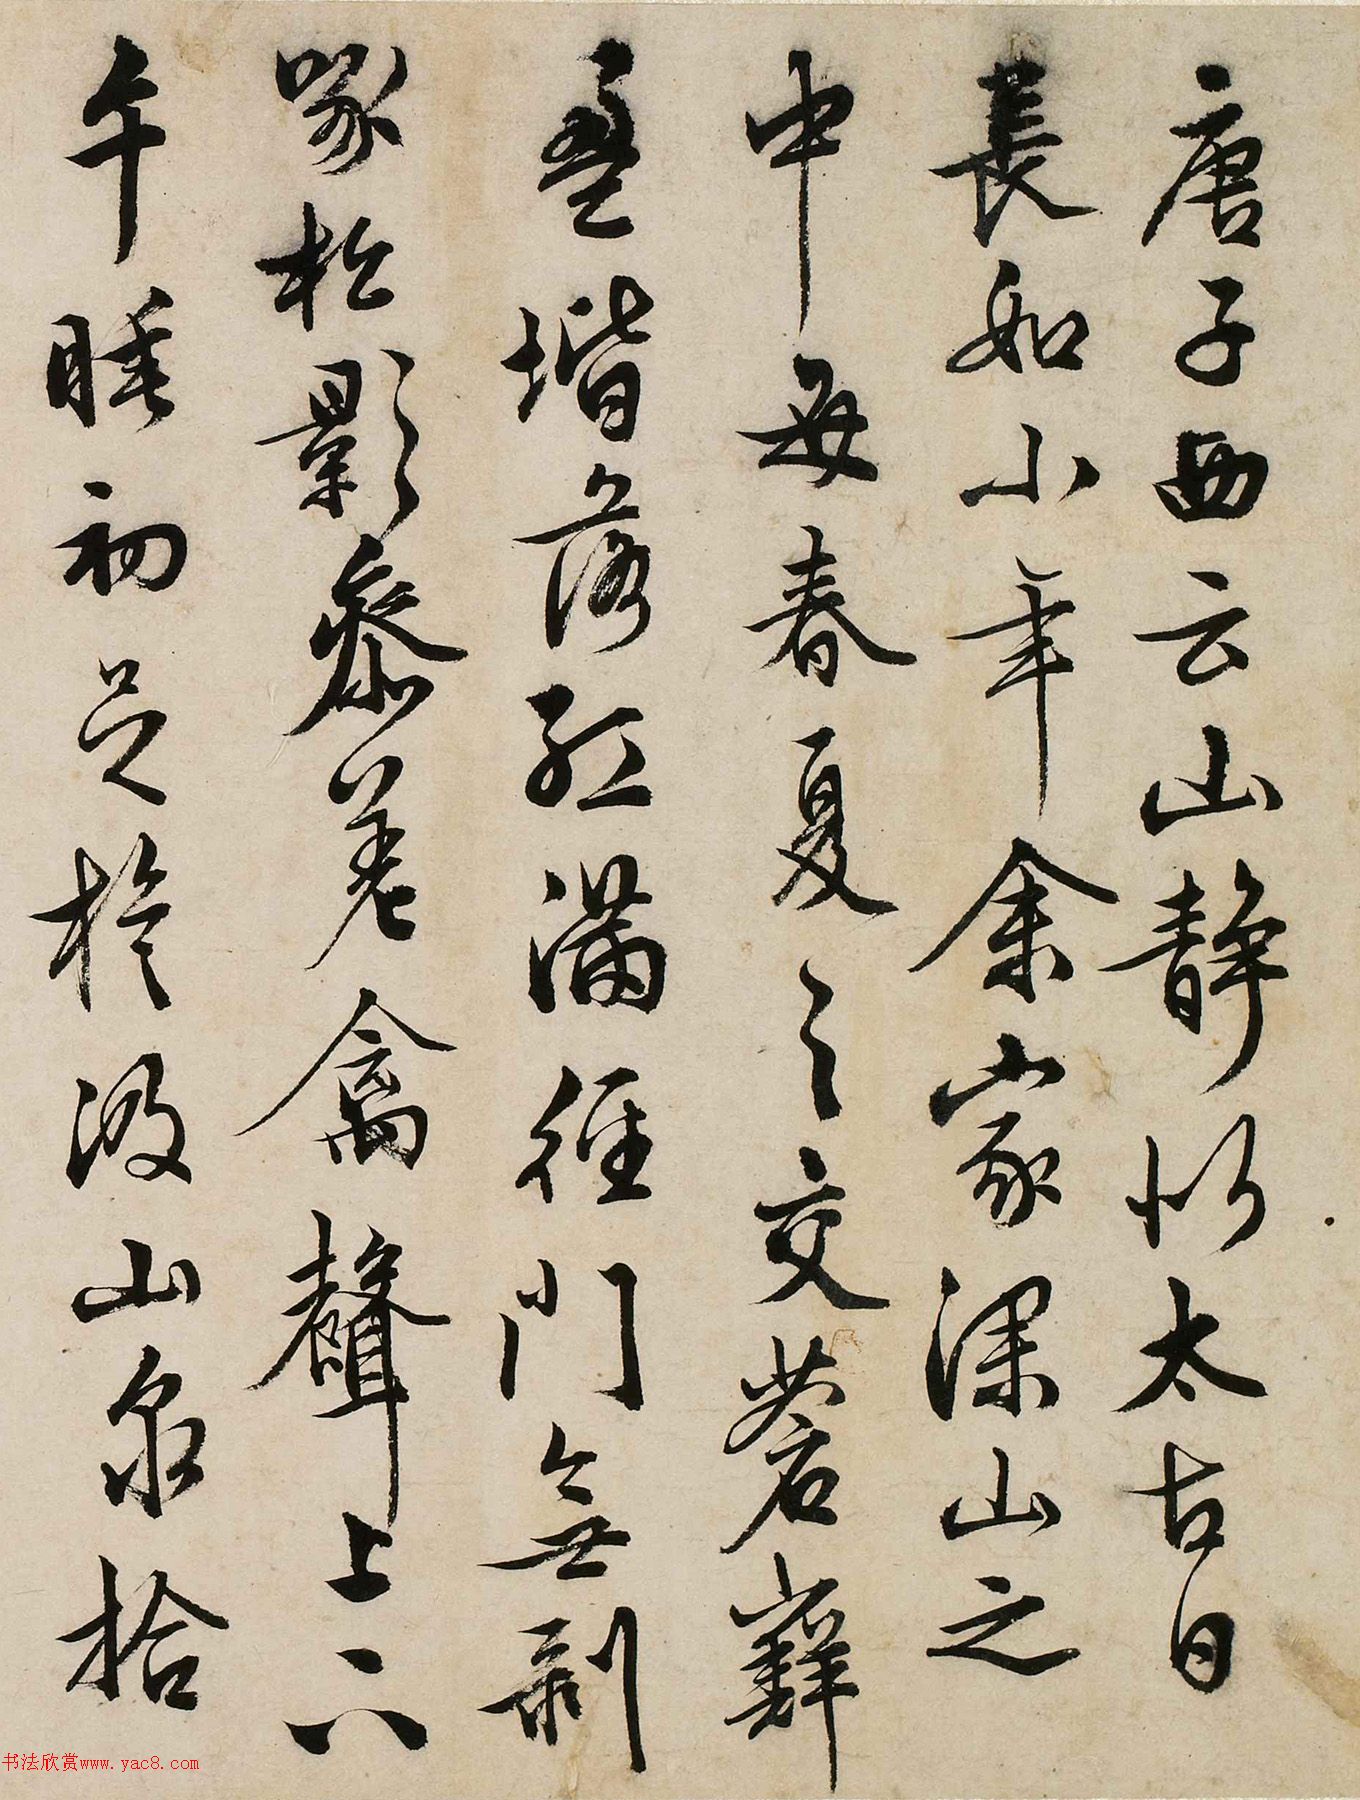 唐子西云山靜似太古日
長如小年余家深山之
中每春夏之交蒼蘚
盈堦落紅滿徑門無剥
啄松影參差禽聲上下
午睡初足於汲山泉拾
书法欣赏www.yac8.com